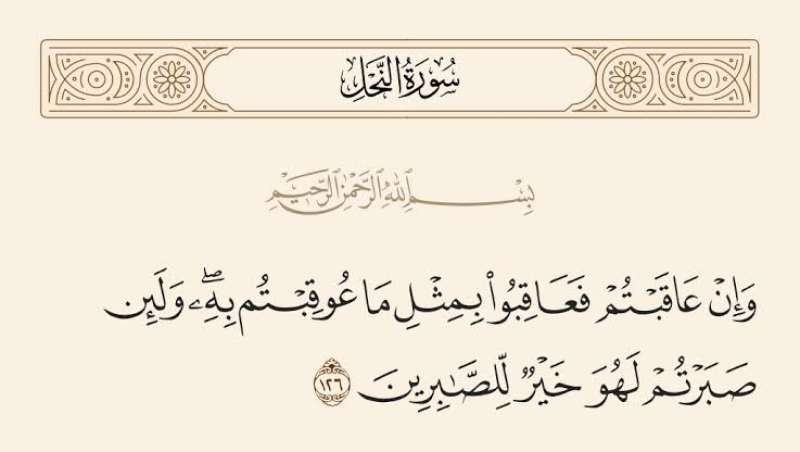 سُورَةُ النَّحْلِ
بِسْمِ اللَّهِ الرَّحْمَٰنِ الرَّحِيمِ
وَإِنْ عَاقَبْتُمْ فَعَاقِبُوا۟ بِمِثْلِ مَا عُوقِبْتُم بِهِۦۖ وَلَئِن
صَبَرْتُمْ لَهُوَ خَيْرٌ لِّلصَّٰبِرِينَ ١٢٦